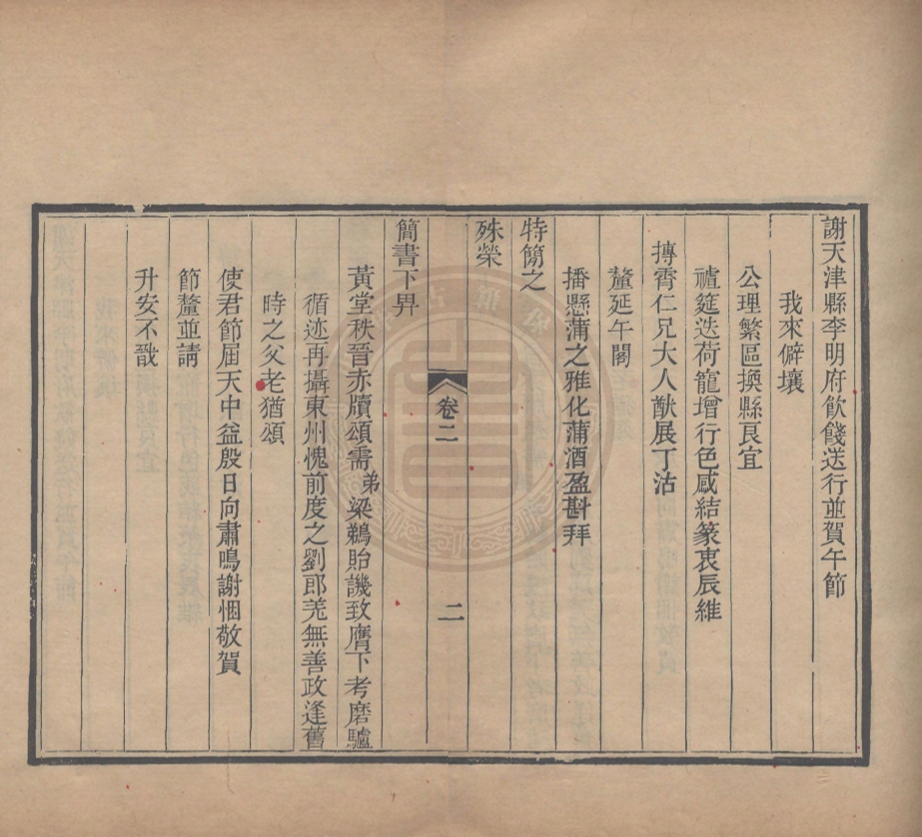 謝天津縣李明府飲餞送行並賀午節
我來僻壤
公理繁區撰縣良宜
禮筵迭荷寵增行色感結篆衷辰維
摶霄仁兄大人猷展丁沽
釐延午閣
播懸蒲之雅化蒲酒盈斟拜
特簡之
殊榮
卷二
二
簡書下畀
黃堂秩晉赤牘頌需弟梁鵜貽譏致膺下考磨驢
循迹再攝東州愧前度之劉郎羌無善政逢舊
時之父老猶頌
使君節屆天中益殷日向肅鳴謝悃敬賀
節釐並請
升安不戩